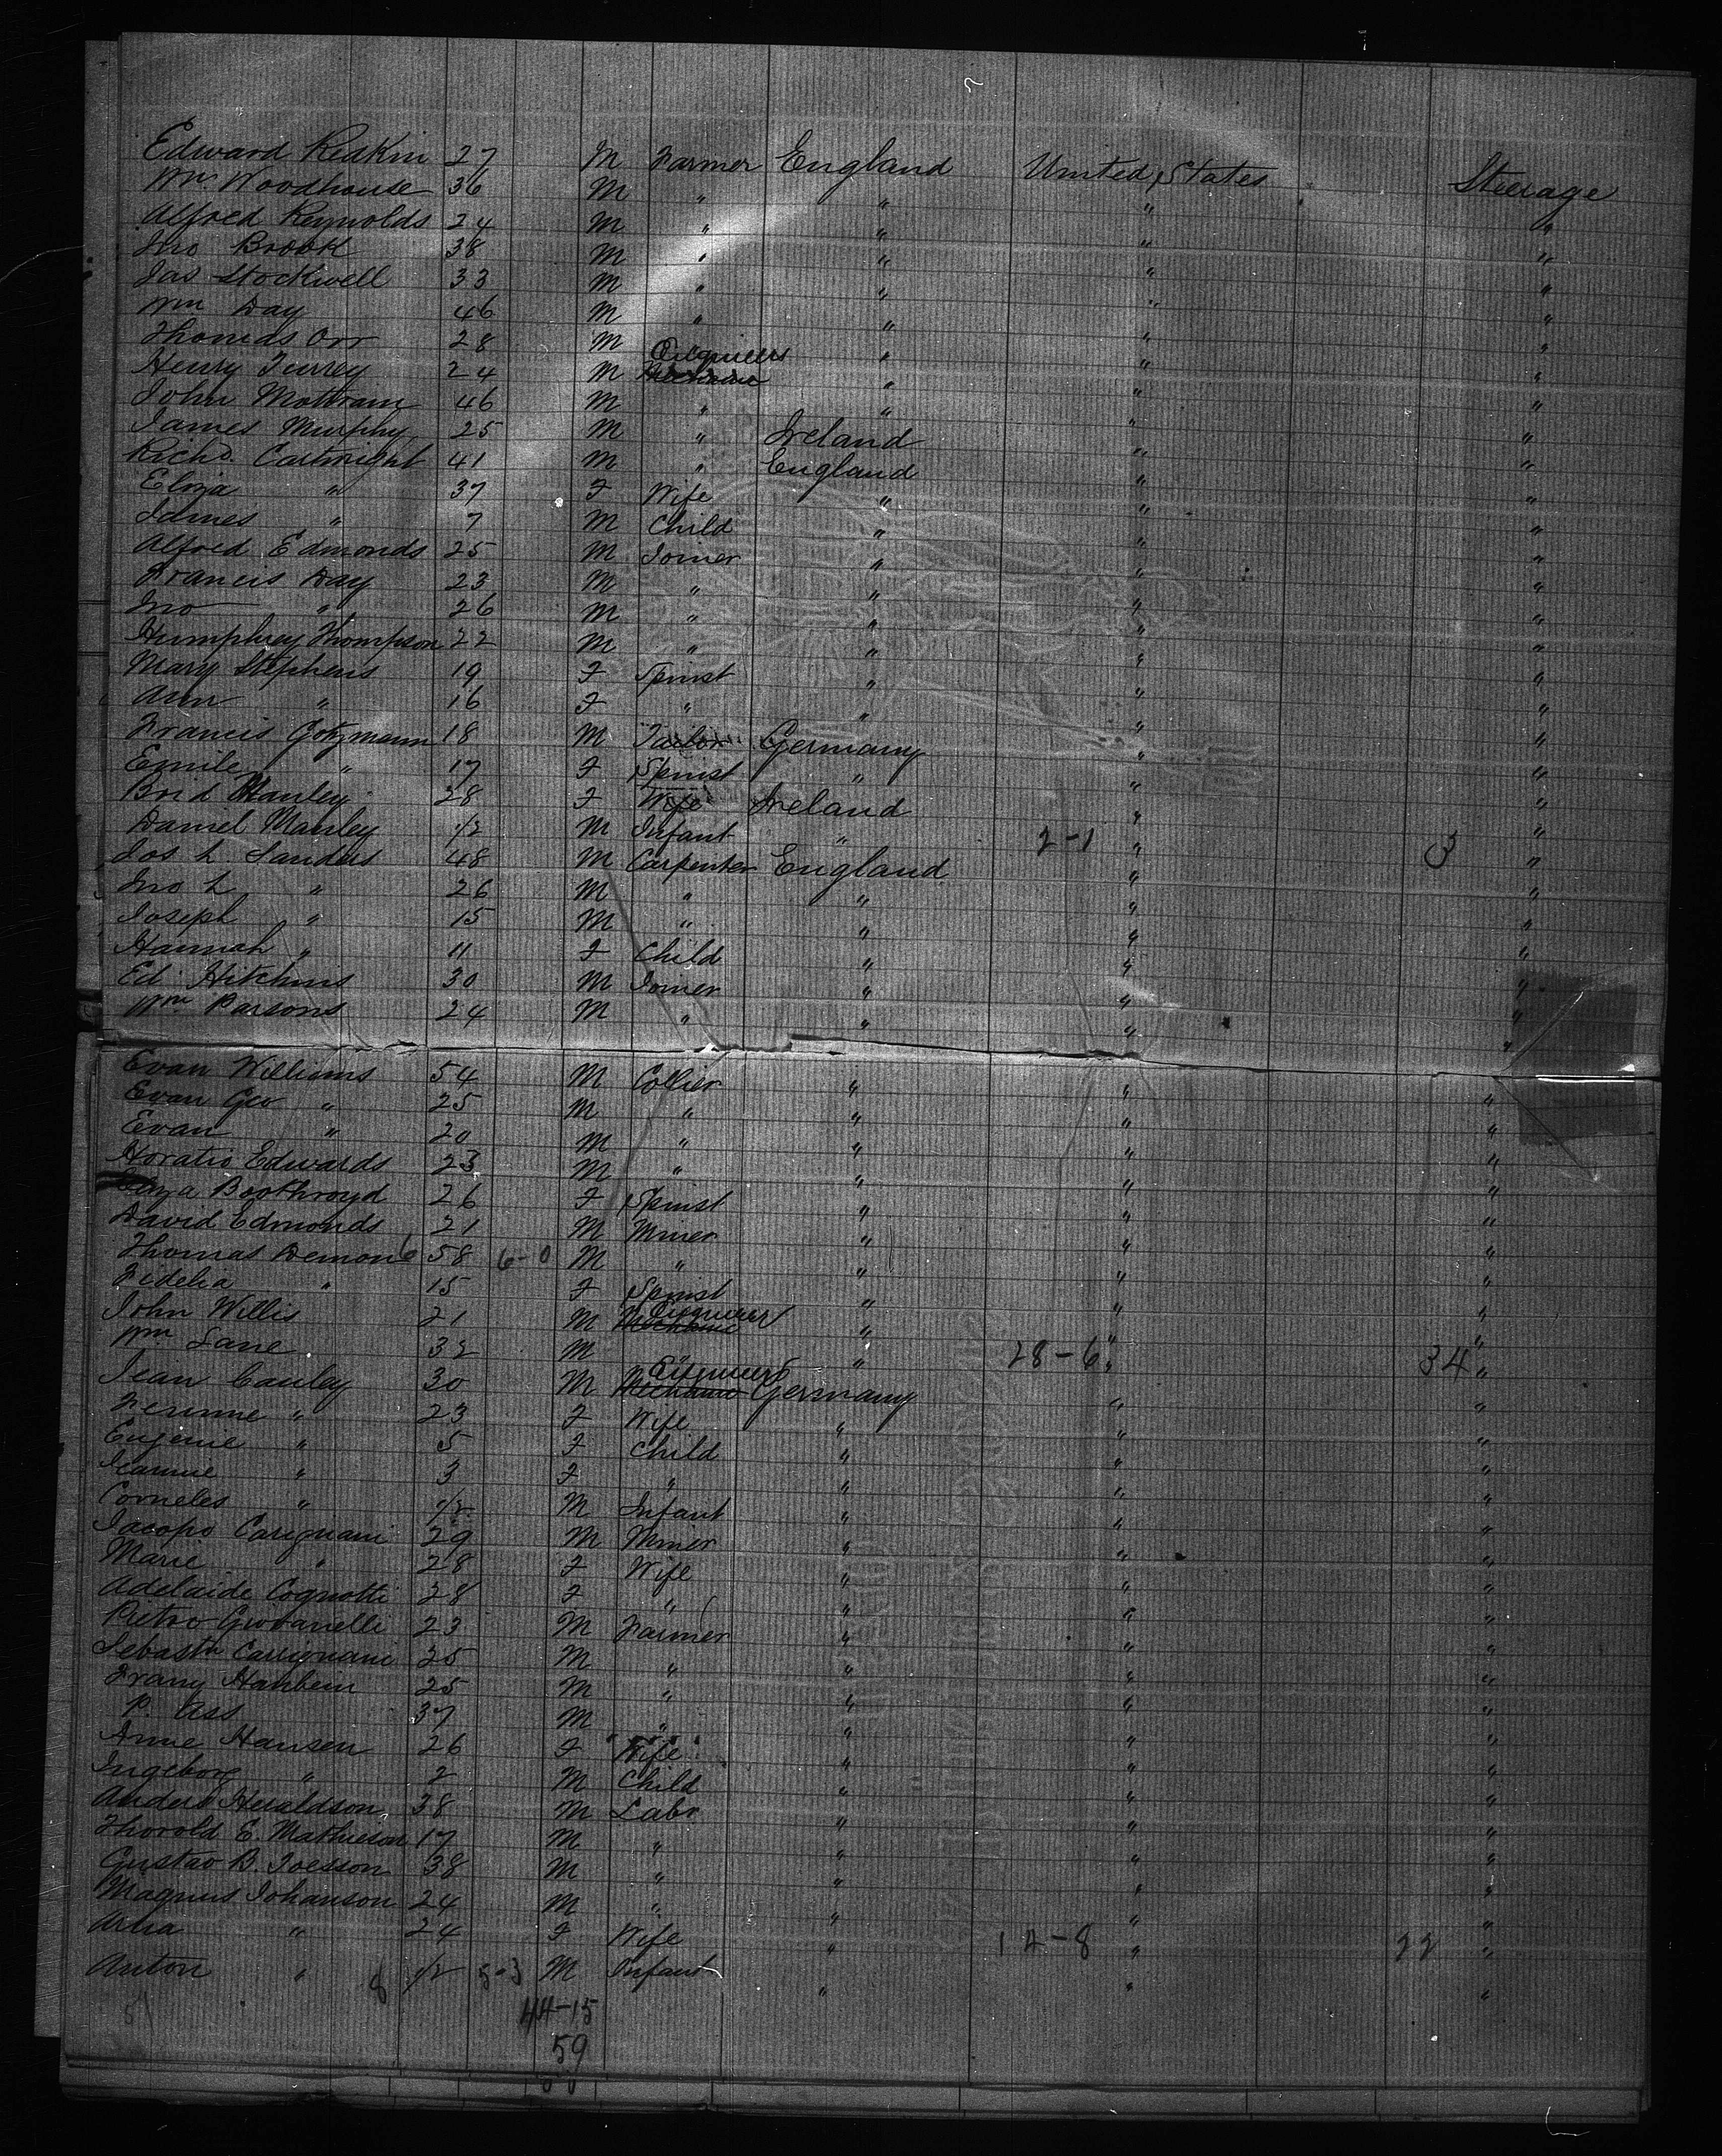 Edward Redkin 27 M Farmer England United States Steerage
Wm. Woodhouse 36 M " " " "
Alfred Reynolds 24 M " " " "
Jno Brook 38 M " " " "
Jas Stockwell 33 M " " " "
Wm Day 46 M " " " "
Thomas Orr 28 M " " " "
Henry Turrey 24 M Engineers " " "
John Mottram 46 M " " " "
James Murphy 25 M " Ireland " "
Richd. Cartwright 41 M " England " "
Eliza " 37 F Wife " " "
James " 7 M Child " " "
Alfred Edmonds 25 M Joiner " " "
Francis Day 23 M " " " "
Jno " 26 M " " " "
Humphrey Thompson 22 M " " " "
Mary Stephens 19 F Spinst " " "
Ann " 16 F " " " "
Francis Gotzmann 18 M Tailor Germany " "
Emile " 17 F Spinst " " "
Brid Hanley 28 F Wife Ireland " "
Daniel Manley 1/2 M Infant " 2-1 " 3 "
Jos h. Sanders 48 M Carpenter England " "
Jno h " 26 M " " " "
Joseph " 15 M " " " "
Hannah " 11 F Child " " "
Ed. Hitchins 30 M Joiner " " "
Wm Parsons 24 M " " " "
Evan Williams 54 M Collier " " "
Evan Geo " 25 M " " " "
Evan " 20 M " " " "
Horatio Edwards 23 M " " " "
Boothroyd 26 F Spinst " " "
David Edmonds 21 M Miner " " "
Thomas Demon 6 58 6-0 M " " " "
Fidelia " 15 F Spinst " " "
John Willis 21 M Mechanic Engineer " " "
Wm Lane 32 M " " 28-6 " 34 "
Jean Cauley 30 M Mechanic Engineers Germany " "
" 23 F Wife " " "
Eugenie " 5 F Child " " "
Jeanne " 3 F " " " "
Corneles " 1/2 M Infant " " "
Jacopo Carignani 29 M Miner " " "
Marie " 28 F Wife " " "
Adelaide Cognotti 28 F " " " "
Pietro Giovanelli 23 M Farmer " " "
Sebastn Carrignani 25 M " " " "
Franz Hanbein 25 M " " " "
P. Ass 37 M " " " "
Anne Hansen 26 F Wife " " "
Ingeborg " 2 M Child " " "
Anders Heraldson 38 M Labr " " "
Thorold E. Mathieson 17 M " " " "
Gustav B. Joesson 38 M " " " "
Magnus Johanson 24 M " " " "
" 24 F Wife " 14-8 " 22 "
Anton " 8 1/2 5-3 M Infant " " "
51 44-15
59